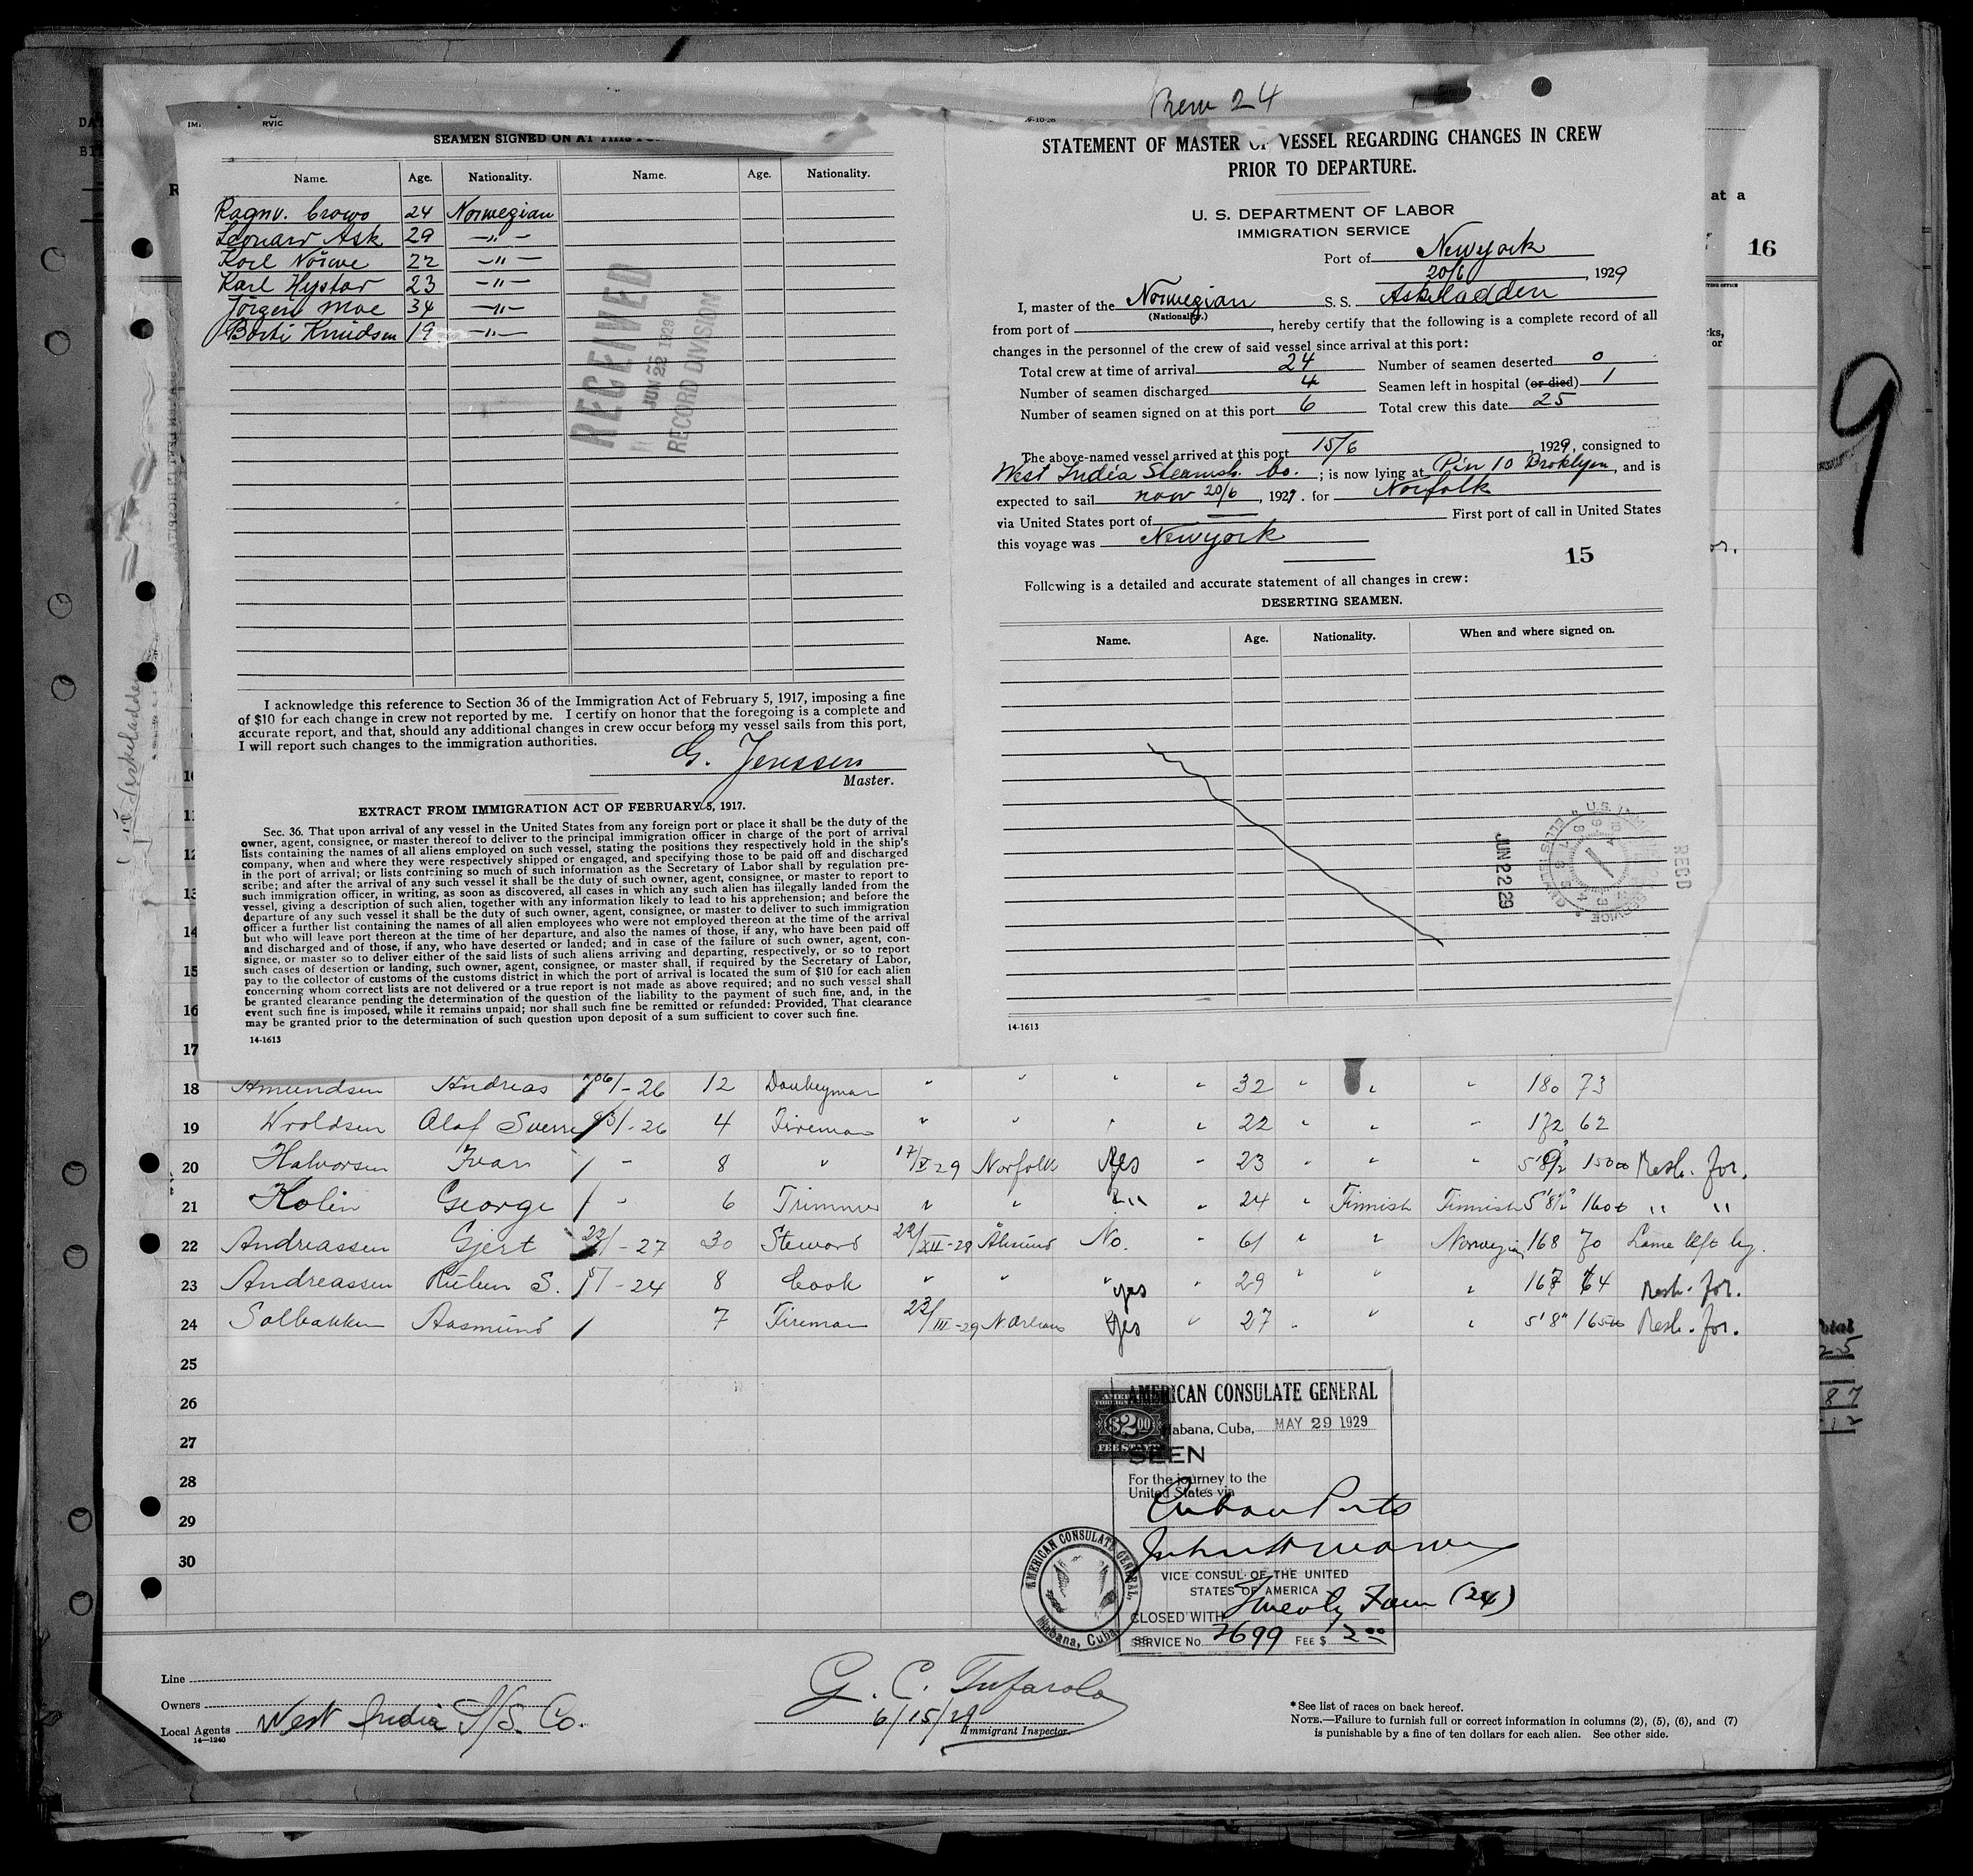 Crew 24
SEAMEN SIGNED ON AT THIS
Name. Age. Nationality. Name. Age. Nationality.
Ragnv. 24 Norwegian
Leonard Ask 29 -"-
Karl 22 -"-
Karl Hystar 23 -"-
Jörgen Moe 34 -"-
Knudsen 19 -"-
RECEIVED
JUN 22 1929
RECORD DIVISION
I acknowledge this reference to Section 36 of the Immigration Act of February 5, 1917, imposing a fine
of $10 for each change in crew not reported by me. I certify on honor that the foregoing is a complete and
accurate report, and that, should any additional changes in crew occur before my vessel sails from this port,
I will report such changes to the immigration authorities.
G. Jenssen
Master.
EXTRACT FROM IMMIGRATION ACT OF FEBRUARY 5, 1917.
Sec. 36. That upon arrival of any vessel in the United States from any foreign port or place it shall be the duty of the
owner, agent, consignee, or master thereof to deliver to the principal immigration officer in charge of the port of arrival
lists containing the names of all aliens employed on such vessel, stating the positions they respectively hold in the ship's
company, when and where they were respectively shipped or engaged, and specifying those to be paid off and discharged
in the port of arrival; or lists containing so much of such information as the Secretary of Labor shall by regulation pre-
scribe; and after the arrival of any such vessel it shall be the duty of such owner, agent, consignee, or master to report to
such immigration officer, in writing, as soon as discovered, all cases in which any such alien has illegally landed from the
vessel, giving a description of such alien, together with any information likely to lead to his apprehension; and before the
departure of any such vessel it shall be the duty of such owner, agent, consignee, or master to deliver to such immigration
officer a further list containing the names of all alien employees who were not employed thereon at the time of the arrival
but who will leave port thereon at the time of her departure, and also the names of those, if any, who have been paid off
and discharged and of those, if any, who have deserted or landed; and in case of the failure of such owner, agent, con-
signee, or master so to deliver either of the said lists of such aliens arriving and departing, respectively, or so to report
such cases of desertion or landing, such owner, agent, consignee, or master shall, if required by the Secretary of Labor,
pay to the collector of customs of the customs district in which the port of arrival is located the sum of $10 for each alien
concerning whom correct lists are not delivered or a true report is not made as above required; and no such vessel shall
be granted clearance pending the determination of the question of the liability to the payment of such fine, and, in the
event such fine is imposed, while it remains unpaid; nor shall such fine be remitted or refunded: Provided, That clearance
may be granted prior to the determination of such question upon deposit of a sum sufficient to cover such fine.
14-1613
STATEMENT OF MASTER OF VESSEL REGARDING CHANGES IN CREW
PRIOR TO DEPARTURE.
U. S. DEPARTMENT OF LABOR
IMMIGRATION SERVICE
Port of Newyork
20/6, 1929
I, master of the Norwegian S. S. Askeladden
(Nationality.)
from port of , hereby certify that the following is a complete record of all
changes in the personnel of the crew of said vessel since arrival at this port:
Total crew at time of arrival 24 Number of seamen deserted 0
Number of seamen discharged 4 Seamen left in hospital (or died) 1
Number of seamen signed on at this port 6 Total crew this date 25
The above-named vessel arrived at this port 15/6 1929, consigned to
West India Steamsh. Co. ; is now lying at Pier 10 Broklyn, and is
expected to sail now 20/6, 1929. for Norfolk
via United States port of First port of call in United States
this voyage was Newyork
15
Following is a detailed and accurate statement of all changes in crew:
DESERTING SEAMEN.
Name. Age. Nationality. When and where signed on.
JUN 22 29
RECD
14-1613
at a
16
9
11
12
13
14
15
16
17
18 Amundsen Andreas - 26 12 Donkeyman " " " " 32 " " " 180 73
19 Wroldsen Olaf Sverre - 26 4 Fireman " " " " 22 " " " 172 62
20 Halvorsen Ivar / - 8 " 17/V 29 Norfolk Yes " 23 " " " 5'8½" 150 Resh. for.
21 Kolin George / - 6 Trimmer " " " " 24 " Finnish Finnish 5'8½" 160 " "
22 Andreassen Gjert - 27 30 Steward 22/XII-28 Ålesund No. " 61 " " Norwegian 168 70 Lame left leg.
23 Andreassen Ruben S. - 24 8 Cook " " yes " 29 " " " 167 64 Resh. for.
24 Solbakken Aasmund / 7 Fireman 23/III-29 N.Orleans yes " 27 " " " 5'8" 165 Resh. for.
25
26
27
28
29
30
$2.00
AMERICAN CONSULATE GENERAL
Habana, Cuba, MAY 29 1929
SEEN
For the journey to the
United States via
Cuban Ports
VICE CONSUL OF THE UNITED
STATES OF AMERICA
CLOSED WITH Twenty Four (24)
SERVICE No. 2699 FEE $ 2.00
AMERICAN CONSULATE GENERAL,
Habana, Cuba.
Line
Owners
Local Agents West India S/S. Co.
14—1240
G. C. Tufarolo
6/15/29 Immigrant Inspector.
* See list of races on back hereof.
NOTE.—Failure to furnish full or correct information in columns (2), (5), (6), and (7)
is punishable by a fine of ten dollars for each alien. See other side.